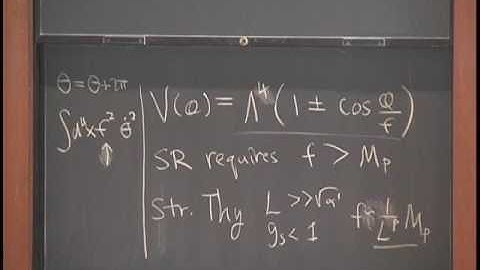 θ = θ+2π
∫d⁴x f² θ̇²
V(φ) = Λ⁴(1 ± cos φ/f)
SR requires f > Mp
Str. Thy L >> √α' f ~ 1/Lᴾ Mp
gs < 1